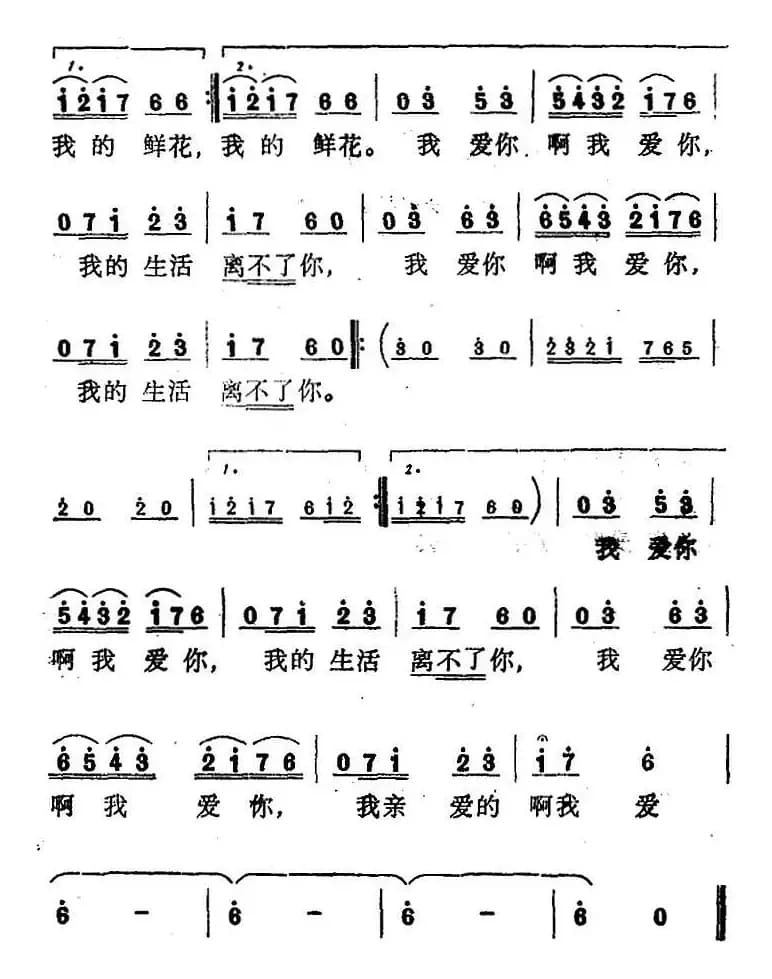 1. 2.
i̇2̇i̇7 66 :‖ i̇2̇i̇7 66 | 03̇ 5̇3̇ | 5̇4̇3̇2̇ i̇76 |
我的鲜花，我的鲜花。我 爱你 啊我 爱你，
07i̇ 2̇3̇ | i̇7 60 | 03̇ 6̇3̇ | 6̇5̇4̇3̇ 2̇i̇76 |
我的生活 离不了你， 我 爱你 啊我 爱你，
07i̇ 2̇3̇ | i̇7 60 :‖ (3̇0 3̇0 | 2̇3̇2̇i̇ 765 |
我的生活 离不了你。
1. 2.
2̇0 2̇0 | i̇2̇i̇7 6i̇2̇ :‖ i̇2̇i̇7 60) | 03̇ 5̇3̇ |
我 爱你
5̇4̇3̇2̇ i̇76 | 07i̇ 2̇3̇ | i̇7 60 | 03̇ 6̇3̇ |
啊我 爱你， 我的生活 离不了你， 我 爱你
6̇5̇4̇3̇ 2̇i̇76 | 07i̇ 2̇3̇ | i̇7̇ 6̇ |
啊我 爱你， 我亲 爱的 啊我 爱
6̇ - | 6̇ - | 6̇ - | 6̇ 0 ‖